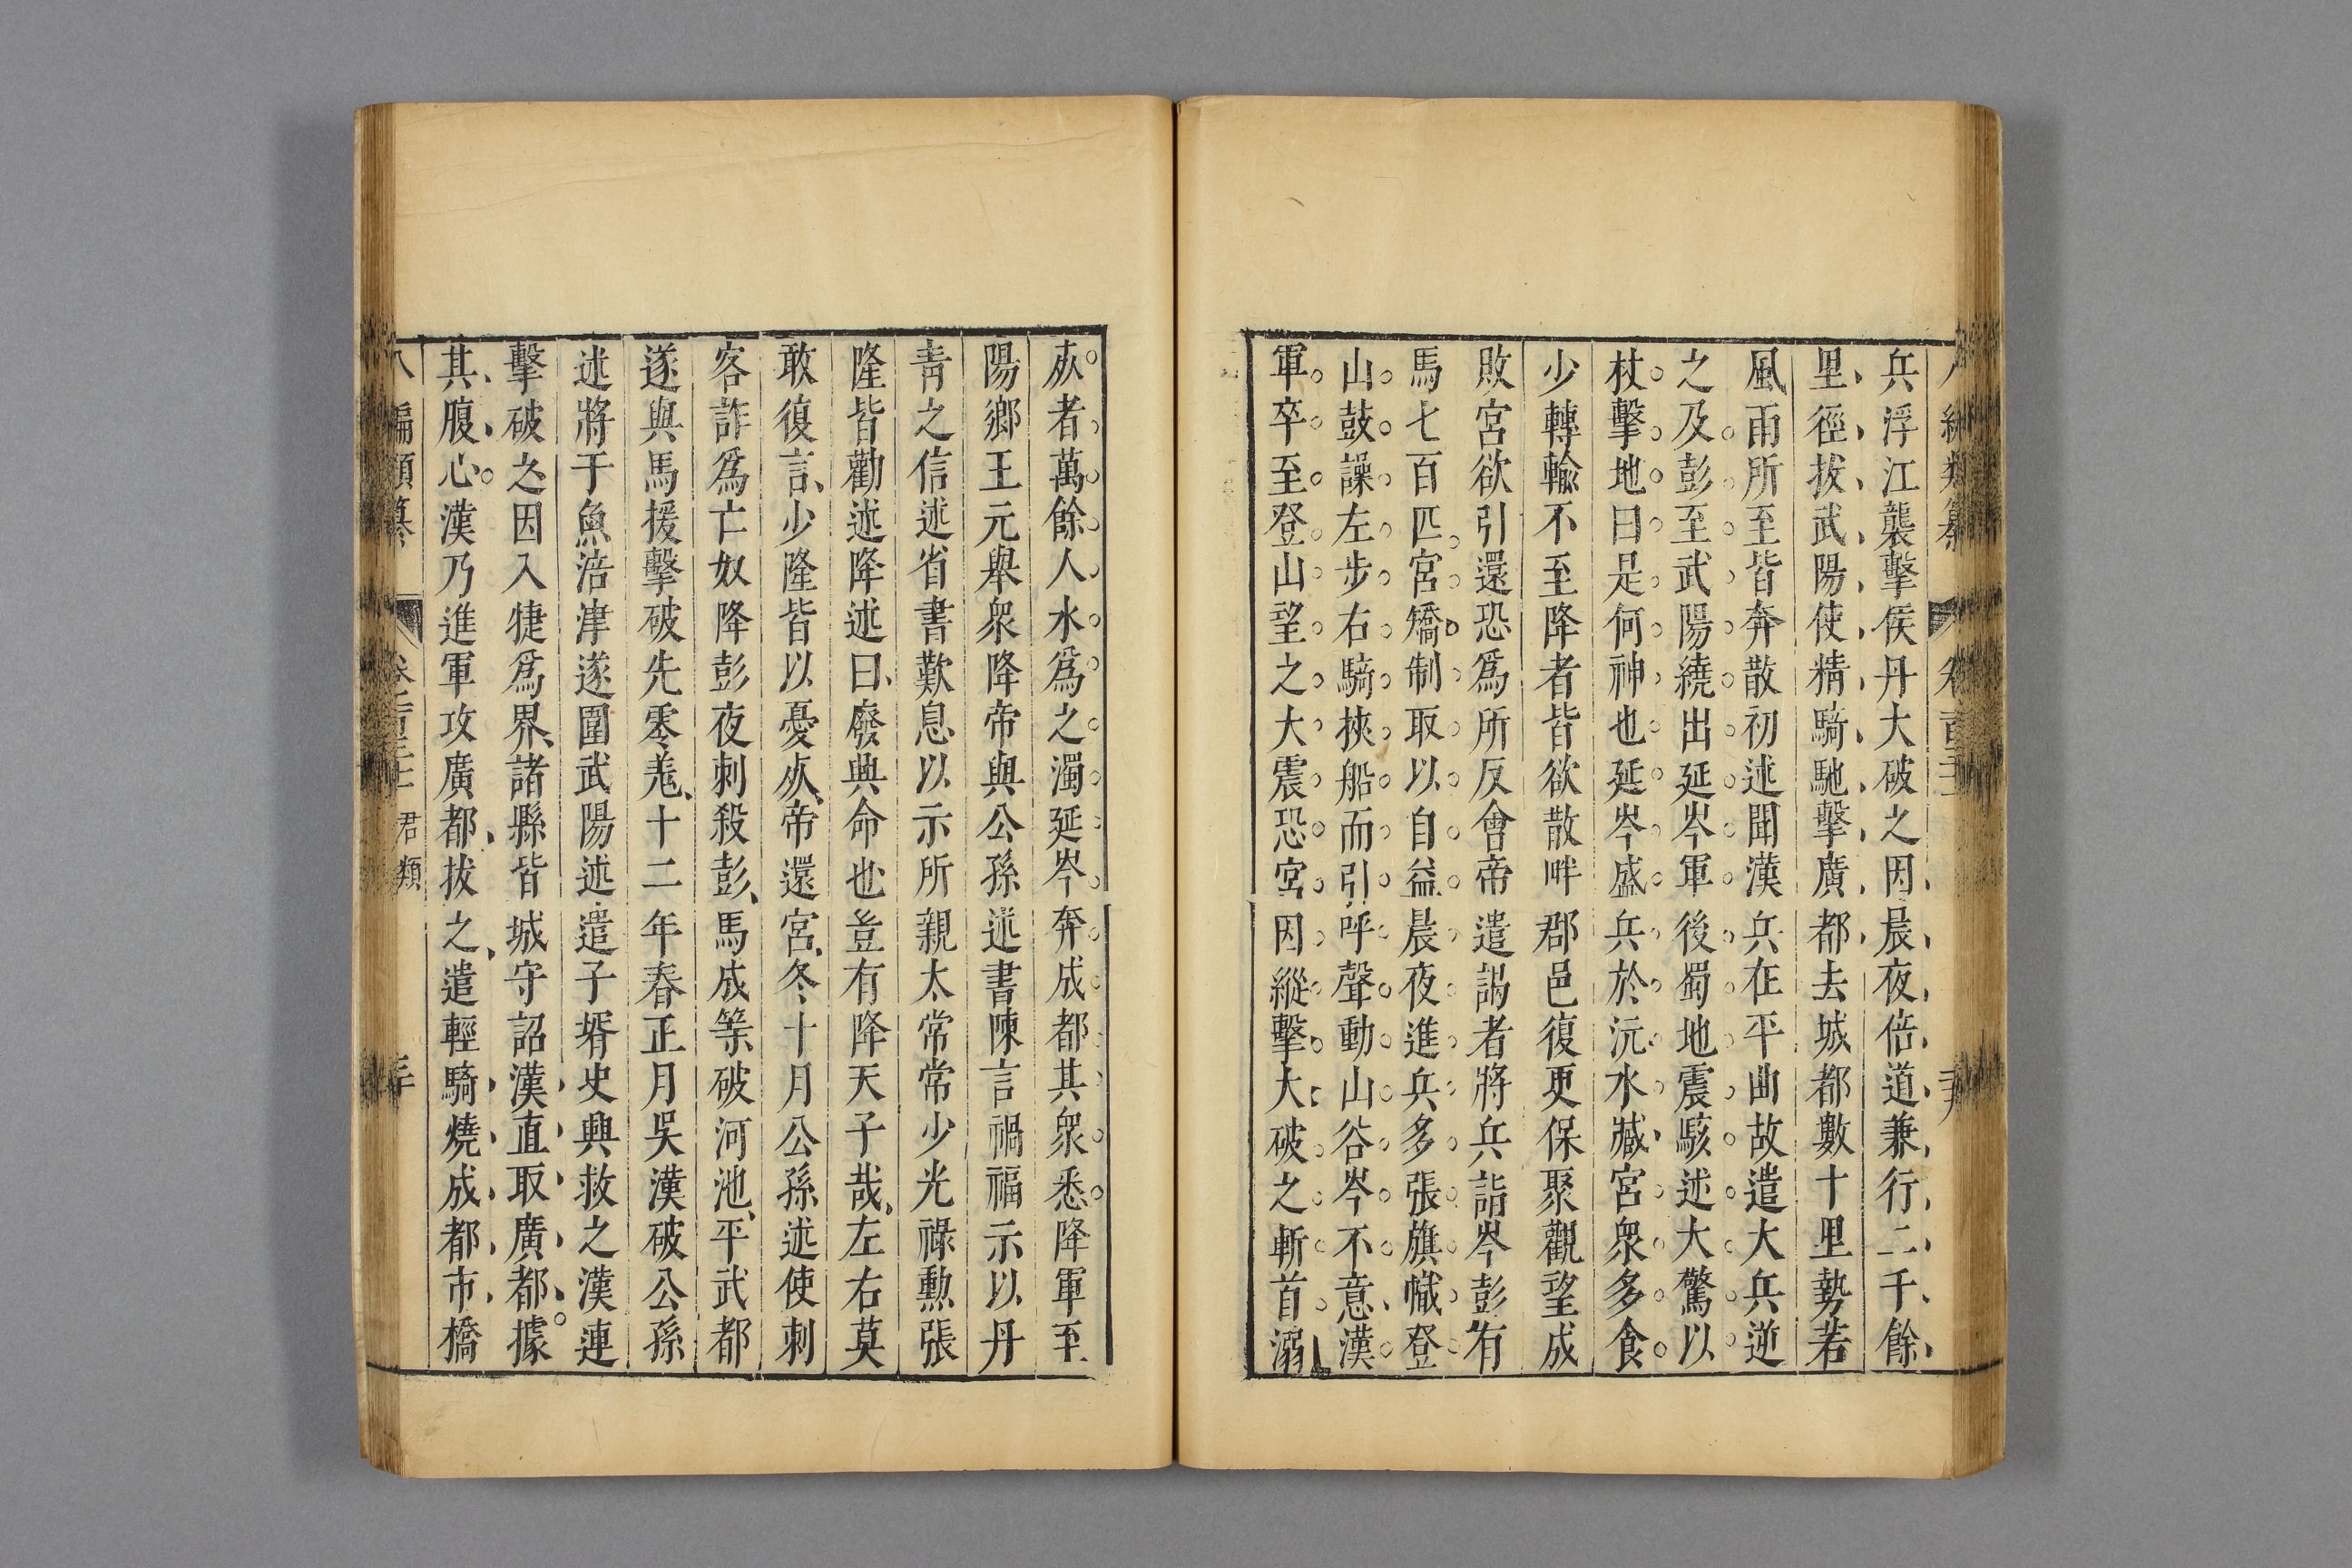 兵浮江襲擊侯丹大破之因晨夜倍道兼行二千餘
里徑拔武陽使精騎馳擊廣都去城都數十里勢若
風雨所至皆奔散初述聞漢兵在平曲故遣大兵逆
之及彭至武陽繞出延岑軍後蜀地震駭述大驚以
杖擊地曰是何神也延岑盛兵於沅水臧宮衆多食
少轉輸不至降者皆欲散畔郡邑復更保聚觀望成
敗宮欲引還恐爲所反會帝遣謁者將兵詣岑彭有
馬七百匹宮矯制取以自益晨夜進兵多張旗幟登
山鼓譟左步右騎挾船而引呼聲動山谷岑不意漢
軍卒至登山望之大震恐宮因縱擊大破之斬首溺
㱔者萬餘人水爲之濁延岑奔成都其衆悉降軍至
陽鄉王元舉衆降帝與公孫述書陳言禍福示以丹
靑之信述省書歎息以示所親太常常少光祿勲張
隆皆勸述降述曰廢興命也豈有降天子哉左右莫
敢復言少隆皆以憂㱔帝還宮冬十月公孫述使刺
客詐爲亡奴降彭夜刺殺彭馬成等破河池平武都
遂與馬援擊破先零羗十二年春正月吳漢破公孫
述將于魚涪津遂圍武陽述遣子壻史興救之漢連
擊破之因入犍爲界諸縣皆城守詔漢直取廣都據
其腹心漢乃進軍攻廣都拔之遣輕騎燒成都市橋
八編類纂 君類